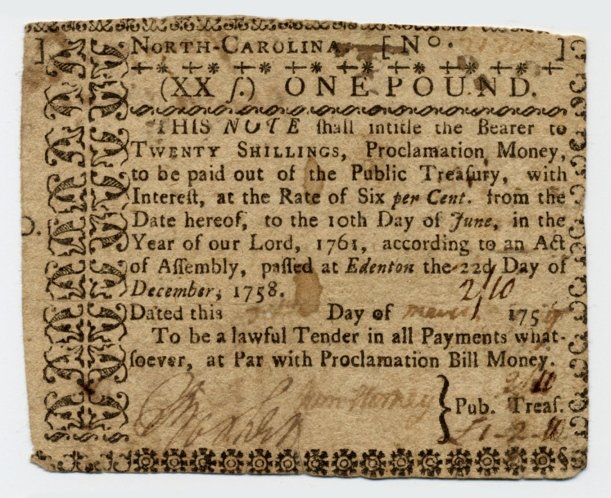 ] NORTH-CAROLINA. [ No. ]
(XX ſ.) ONE POUND.
THIS NOTE ſhall intitle the Bearer to
TWENTY SHILLINGS, Proclamation Money,
to be paid out of the Public Treaſury, with
Intereſt, at the Rate of Six per Cent. from the
Date hereof, to the 10th Day of June, in the
Year of our Lord, 1761, according to an Act
of Aſſembly, paſſed at Edenton the 22d Day of
December, 1758. 2/10
Dated this Day of March 175
To be a lawful Tender in all Payments what-
ſoever, at Par with Proclamation Bill Money.
} Pub. Treaſ.